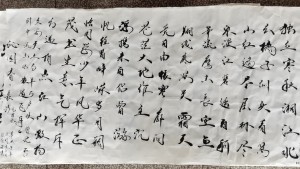 独立寒秋湘江北
去橘子洲头看万
山红遍层林尽染
漫江碧透百舸
争流鹰击长空鱼
翔浅底万类霜天
竞自由怅寥廓问
苍茫大地谁主沉
浮携来百侣曾游
忆往昔峥嵘岁月稠
恰同学少年风华正
茂书生意气挥斥
方遒指点江山激扬
沁园春长沙